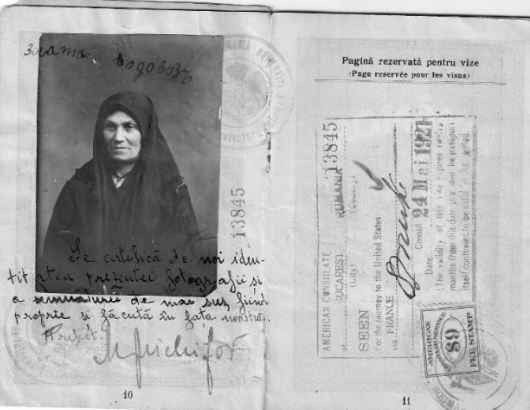 Злата Водовозъ
13845
Se certifică de noi iden-
titatea prezentei fotografii și
a semnăturii de mai sus fiind
proprie și făcută în fața noastră.
Prefect,
10
Pagină rezervată pentru vize
(Page reservée pour les visas)
13845
AMERICAN CONSULATE
at BUCAREST RUMANIA
(City) (Country)
SEEN
For the journey to the United States
via FRANCE
Consul
Date 24 Mai 1921
(The validity of this visa expires twelve
months from this date provided the passport
itself continues to be valid for that period.
AMERICAN
FEE STAMP
11